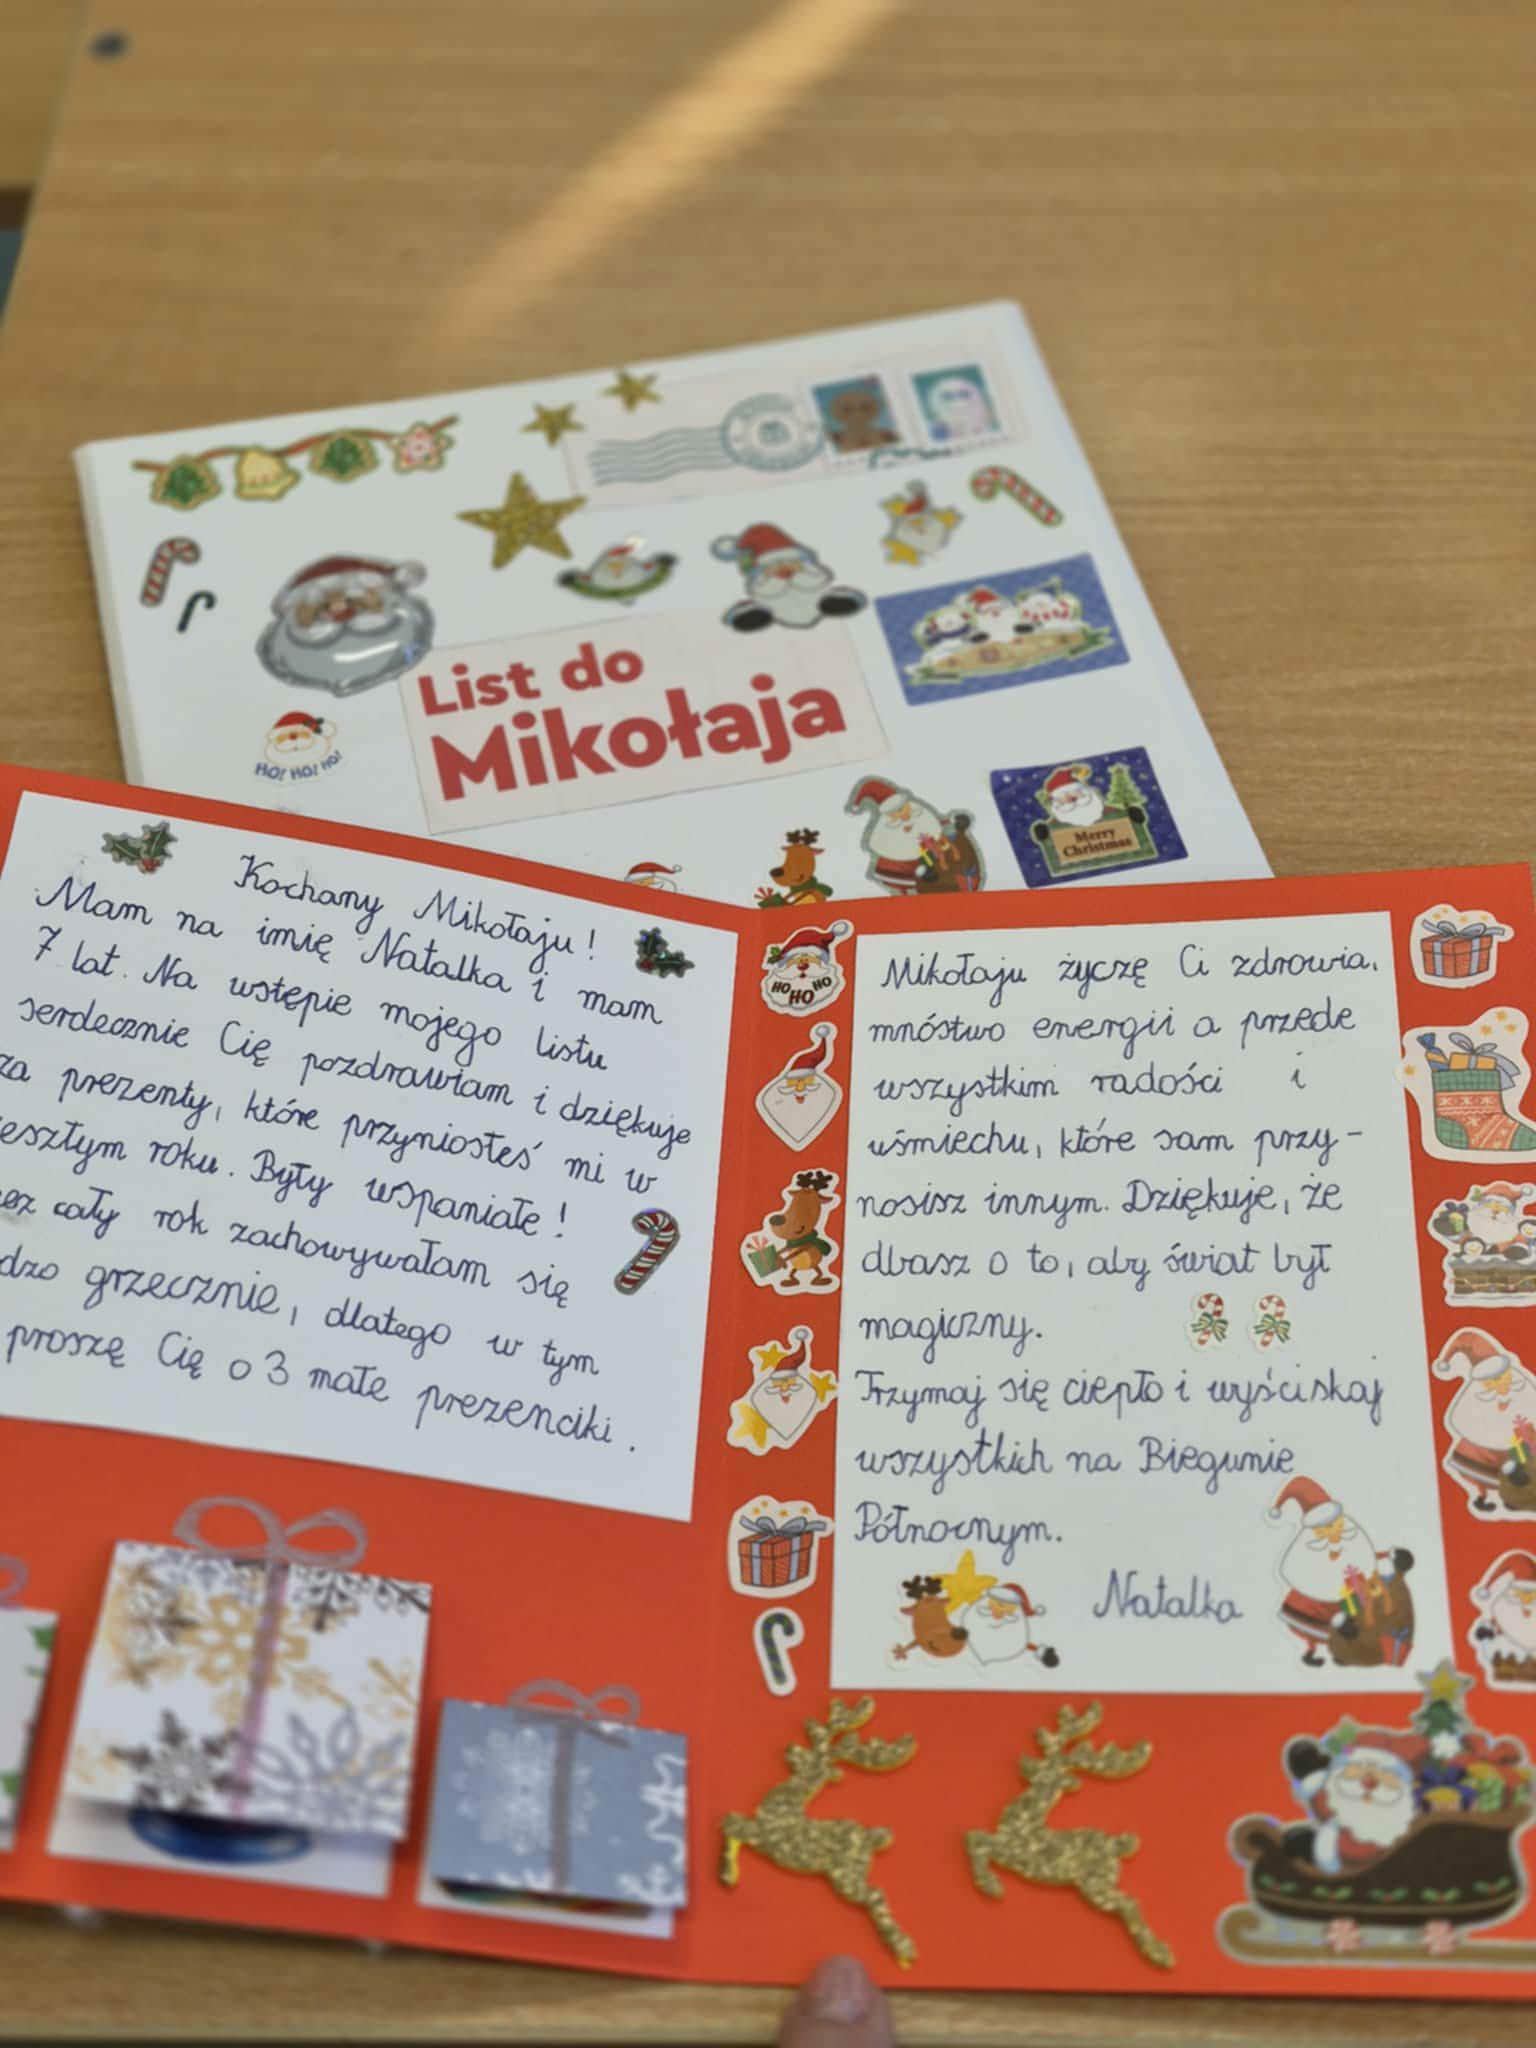 List do
Mikołaja
HO! HO! HO!
Merry
Christmas
Kochany Mikołaju!
Mam na imię Natalka i mam
7 lat. Na wstępie mojego listu
serdecznie Cię pozdrawiam i dziękuje
za prezenty, które przyniosłeś mi w
esztym roku. Były wspaniałe!
ez cały rok zachowywałam się
dzo grzecznie, dlatego w tym
proszę Cię o 3 małe prezenciki.
HO HO HO
Mikołaju życzę Ci zdrowia,
mnóstwo energii a przede
wszystkim radości i
uśmiechu, które sam przy-
nosisz innym. Dziękuje, że
dbasz o to, aby świat był
magiczny.
Trzymaj się ciepło i wyściskaj
wszystkich na Biegunie
Północnym.
Natalka